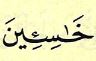 خَٰسِـِٔينَ